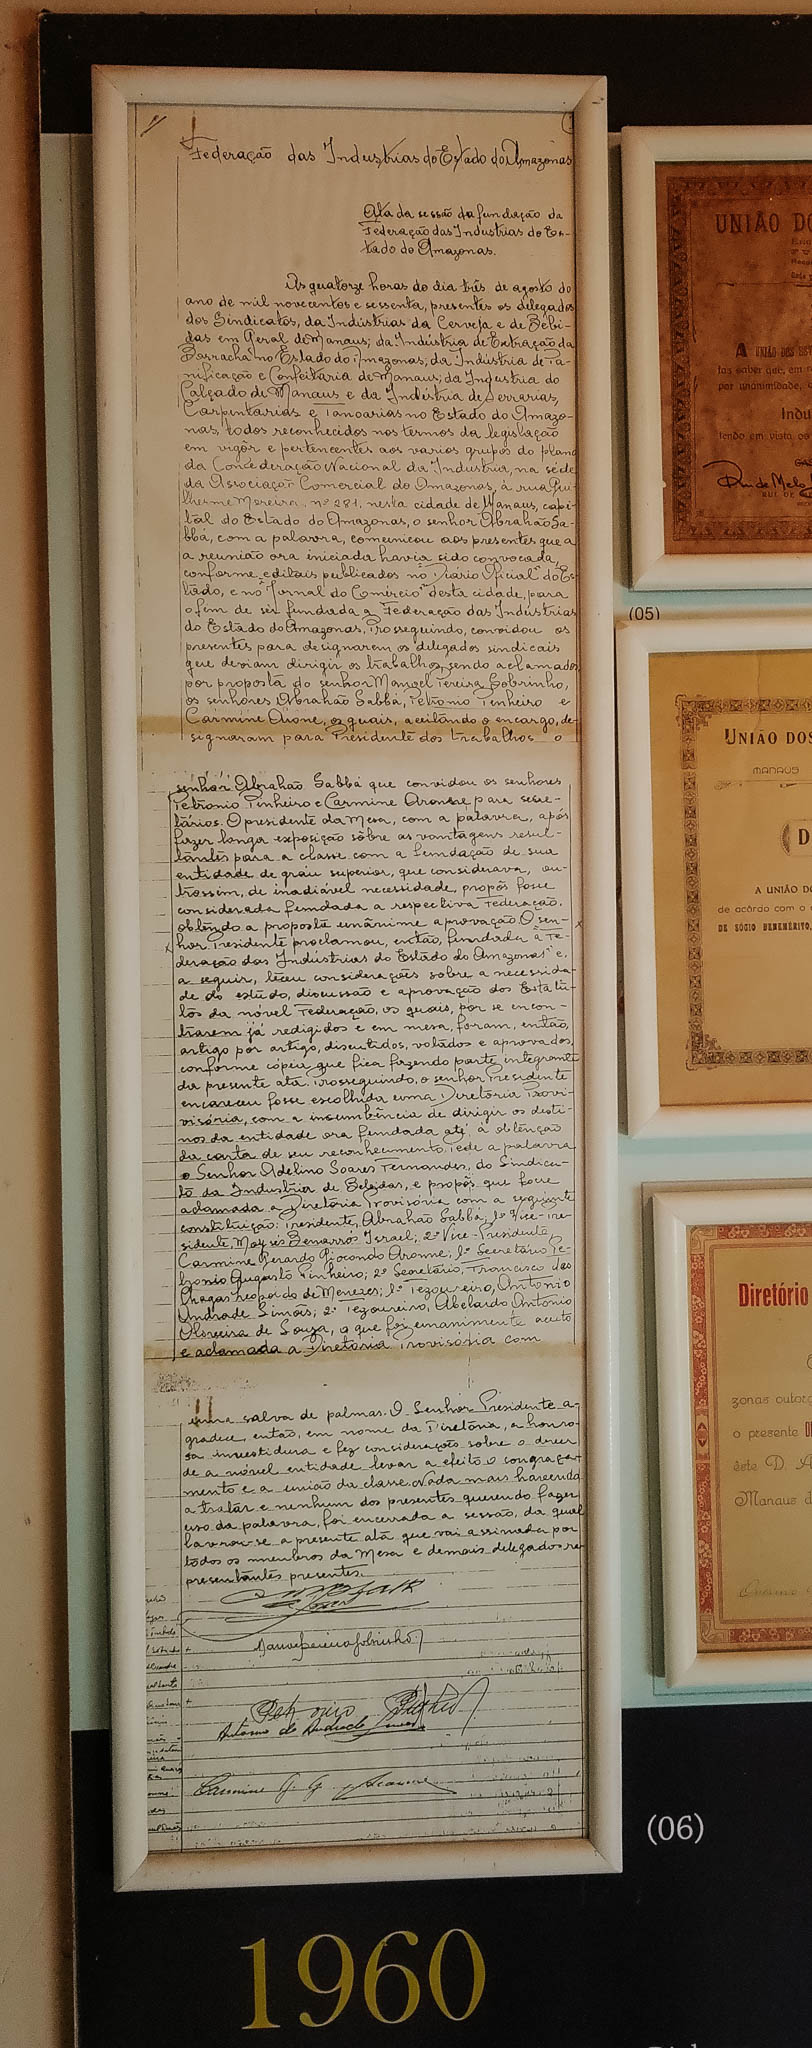 Federação das Industrias do Estado do Amazonas
Ata da sessão da fundação da
Federação das Industrias do Es-
tado do Amazonas.
As quatorze horas do dia três de agosto do
ano de mil novecentos e sessenta, presentes os delegados
dos Sindicatos, da Indústrias da Cerveja e de Bebi-
das em Geral de Manaus; da Indústria de Extração da
Borracha no Estado do Amazonas; da Indústria de Pa-
nificação e Confeitaria de Manaus; da Industria do
Calçado de Manaus e da Indústria de Serrarias,
Carpintarias e Tanoarias no Estado do Amazo-
nas, todos reconhecidos nos termos da legislação
em vigôr e pertencentes aos varios grupos do plano
da Confederação Nacional da Industria, na séde
da Associação Comercial do Amazonas, à rua Gui-
lherme Moreira, nº 281, nesta cidade de Manaus, capi-
tal do Estado do Amazonas, o senhor Abrahão Sa-
bbá, com a palavra, comunicou aos presentes que a
a reunião ora iniciada havia sido convocada,
conforme editais publicados no "Diário Oficial" do Es-
tado, e no "Jornal do Comércio" desta cidade, para
o fim de ser fundada a Federação das Indústrias
do Estado do Amazonas. Prosseguindo, convidou os
presentes para designarem os delegados sindicais
que deviam dirigir os trabalhos, sendo aclamados
por proposta do senhor Manoel Pereira Sobrinho,
os senhores Abrahão Sabbá, Petronio Pinheiro e
Carmine Arone, os quais, aceitando o encargo, de-
signaram para Presidente dos trabalhos o
senhor Abrahão Sabbá que convidou os senhores
Petronio Pinheiro e Carmine Aronne para secre-
tários. O presidente da Mesa, com a palavra, após
fazer longa exposição sôbre as vantagens resul-
tantes para a classe com a fundação de sua
entidade de gráu superior, que considerava, ou-
trossim, de inadiável necessidade, propôs fosse
considerada fundada a respectiva Federação,
obtendo a proposta unânime aprovação. O sen-
hor Presidente proclamou, então, fundada "a Fe-
deração das Indústrias do Estado do Amazonas" e,
a seguir, teceu considerações sobre a necessida-
de do estudo, discussão e aprovação dos Estatu-
tos da nóvel Federação, os quais, por se encon-
trarem já redigidos e em mesa, foram, então,
artigo por artigo, discutidos, votados e aprovados,
conforme cópia que fica fazendo parte integrante
da presente ata. Prosseguindo, o senhor Presidente
encareceu fosse escolhida uma Diretoria Provi-
visória, com a incumbência de dirigir os desti-
nos da entidade ora fundada até à obtenção
da carta de seu reconhecimento. Pede a palavra
o Senhor Adelino Soares Fernandes, do Sindica-
to da Industria de Bebidas, e propôs que fosse
aclamada a Diretoria Provisória com a seguinte
constituição: Presidente, Abrahão Sabbá; 1º Vice-Pre-
sidente, Moysés Benarrós Israel; 2º Vice-Presidente,
Carmine Gerardo Giocondo Aronne; 1º Secretário, Pe-
tronio Augusto Pinheiro; 2º Secretário, Francisco das
Chagas Leopoldo de Menezes; 1º Tezoureiro, Antonio
Andrade Simões; 2º Tezoureiro, Abelardo Antonio
Oliveira de Souza, o que foi unanimente aceito
e aclamada a Diretoria Provisória com
uma salva de palmas. O Senhor Presidente a-
gradece, então, em nome da Diretoria, a honro-
sa investidura e fez considerações sobre o dever
de a nóvel entidade levar a efeito o congraça-
mento e a união da classe. Nada mais havendo
a tratar e nenhum dos presentes querendo fazer
uso da palavra, foi encerrada a sessão, da qual
lavrou-se a presente ata que vai assinada por
todos os membros da Mesa e demais delegados re-
presentantes presentes.
Manoel Pereira Sobrinho
Petronio Pinheiro
Antonio de Andrade Simões
Carmine G. G. Aronne
(06)
1960
UNIÃO DO
A UNIÃO DOS
faz saber que, em
por unanimidade,
Indu
tendo em vista os
Rui de Melo
RUI DE
(05)
UNIÃO DOS
MANAUS
D
A UNIÃO DO
de acôrdo com o
DE SÓCIO BENEMÉRITO,
Diretório
zonas outor
o presente
êste D. A
Manaus d